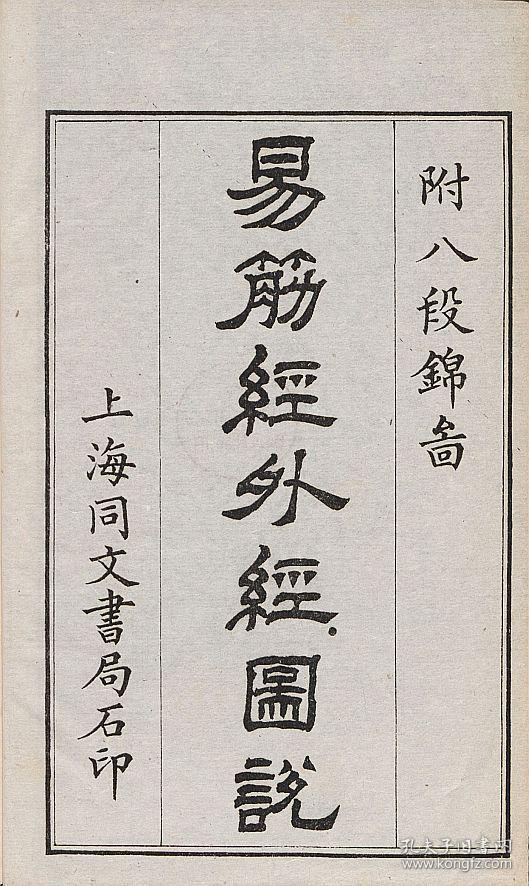 附八段錦啚
易筋經外經圖說
上海同文書局石印
孔夫子旧书网
www.kongfz.com